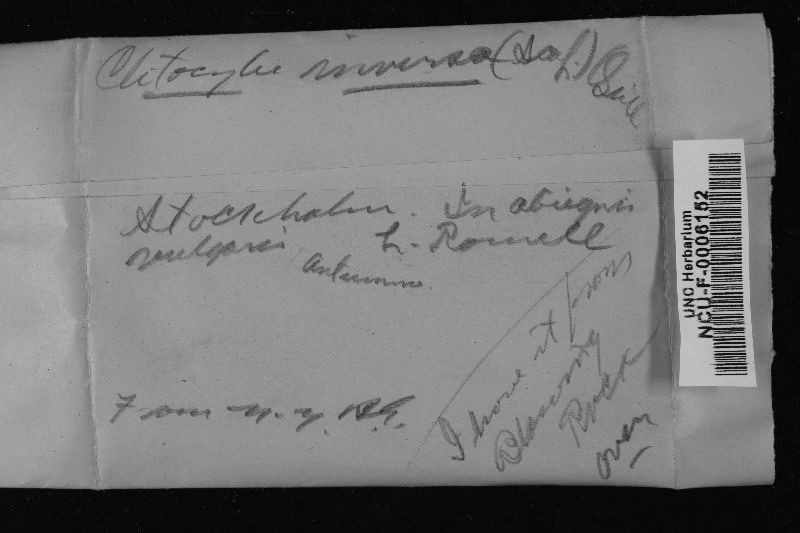 Clitocybe inversa (Scop.) Quél
Stockholm. In abiegnis
vulgaris L. Romell
Autumno.
From N.Y. B.G.
I have it from
Blowing
Rock
over
UNC Herbarium
NCU-F-0006152